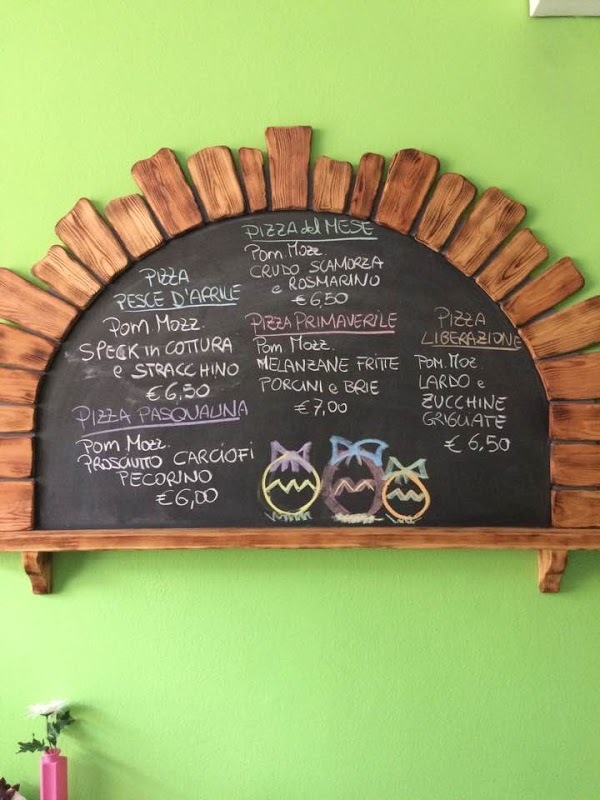 PIZZA del MESE
POM. MOZZ.
CRUDO SCAMORZA
e ROSMARINO
€ 6,50
PIZZA
PESCE D'APRILE
POM MOZZ.
SPECK in COTTURA
e STRACCHINO
€ 6,50
PIZZA PRIMAVERILE
POM. MOZZ.
MELANZANE FRITTE
PORCINI e BRIE
€ 7,00
PIZZA
LIBERAZIONE
POM. MOZ.
LARDO e
ZUCCHINE
GRIGLIATE
€ 6,50
PIZZA PASQUALINA
POM MOZZ.
PROSCIUTTO CARCIOFI
PECORINO
€ 6,00